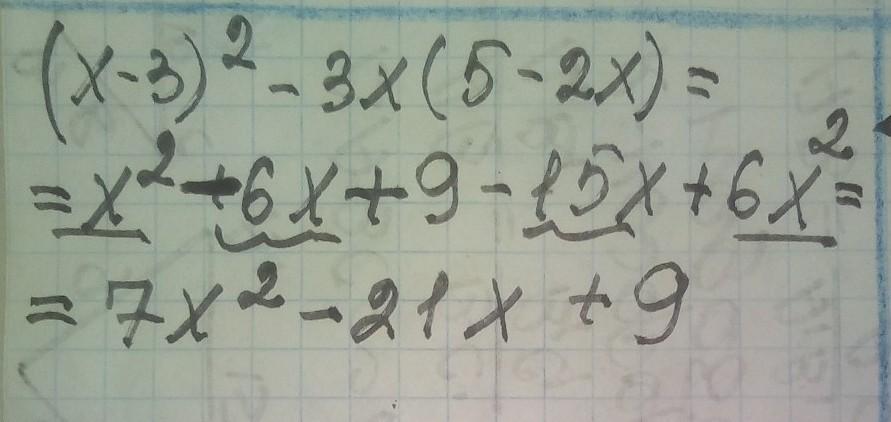 (x-3)² - 3x(5-2x) =
= x² - 6x + 9 - 15x + 6x² =
= 7x² - 21x + 9